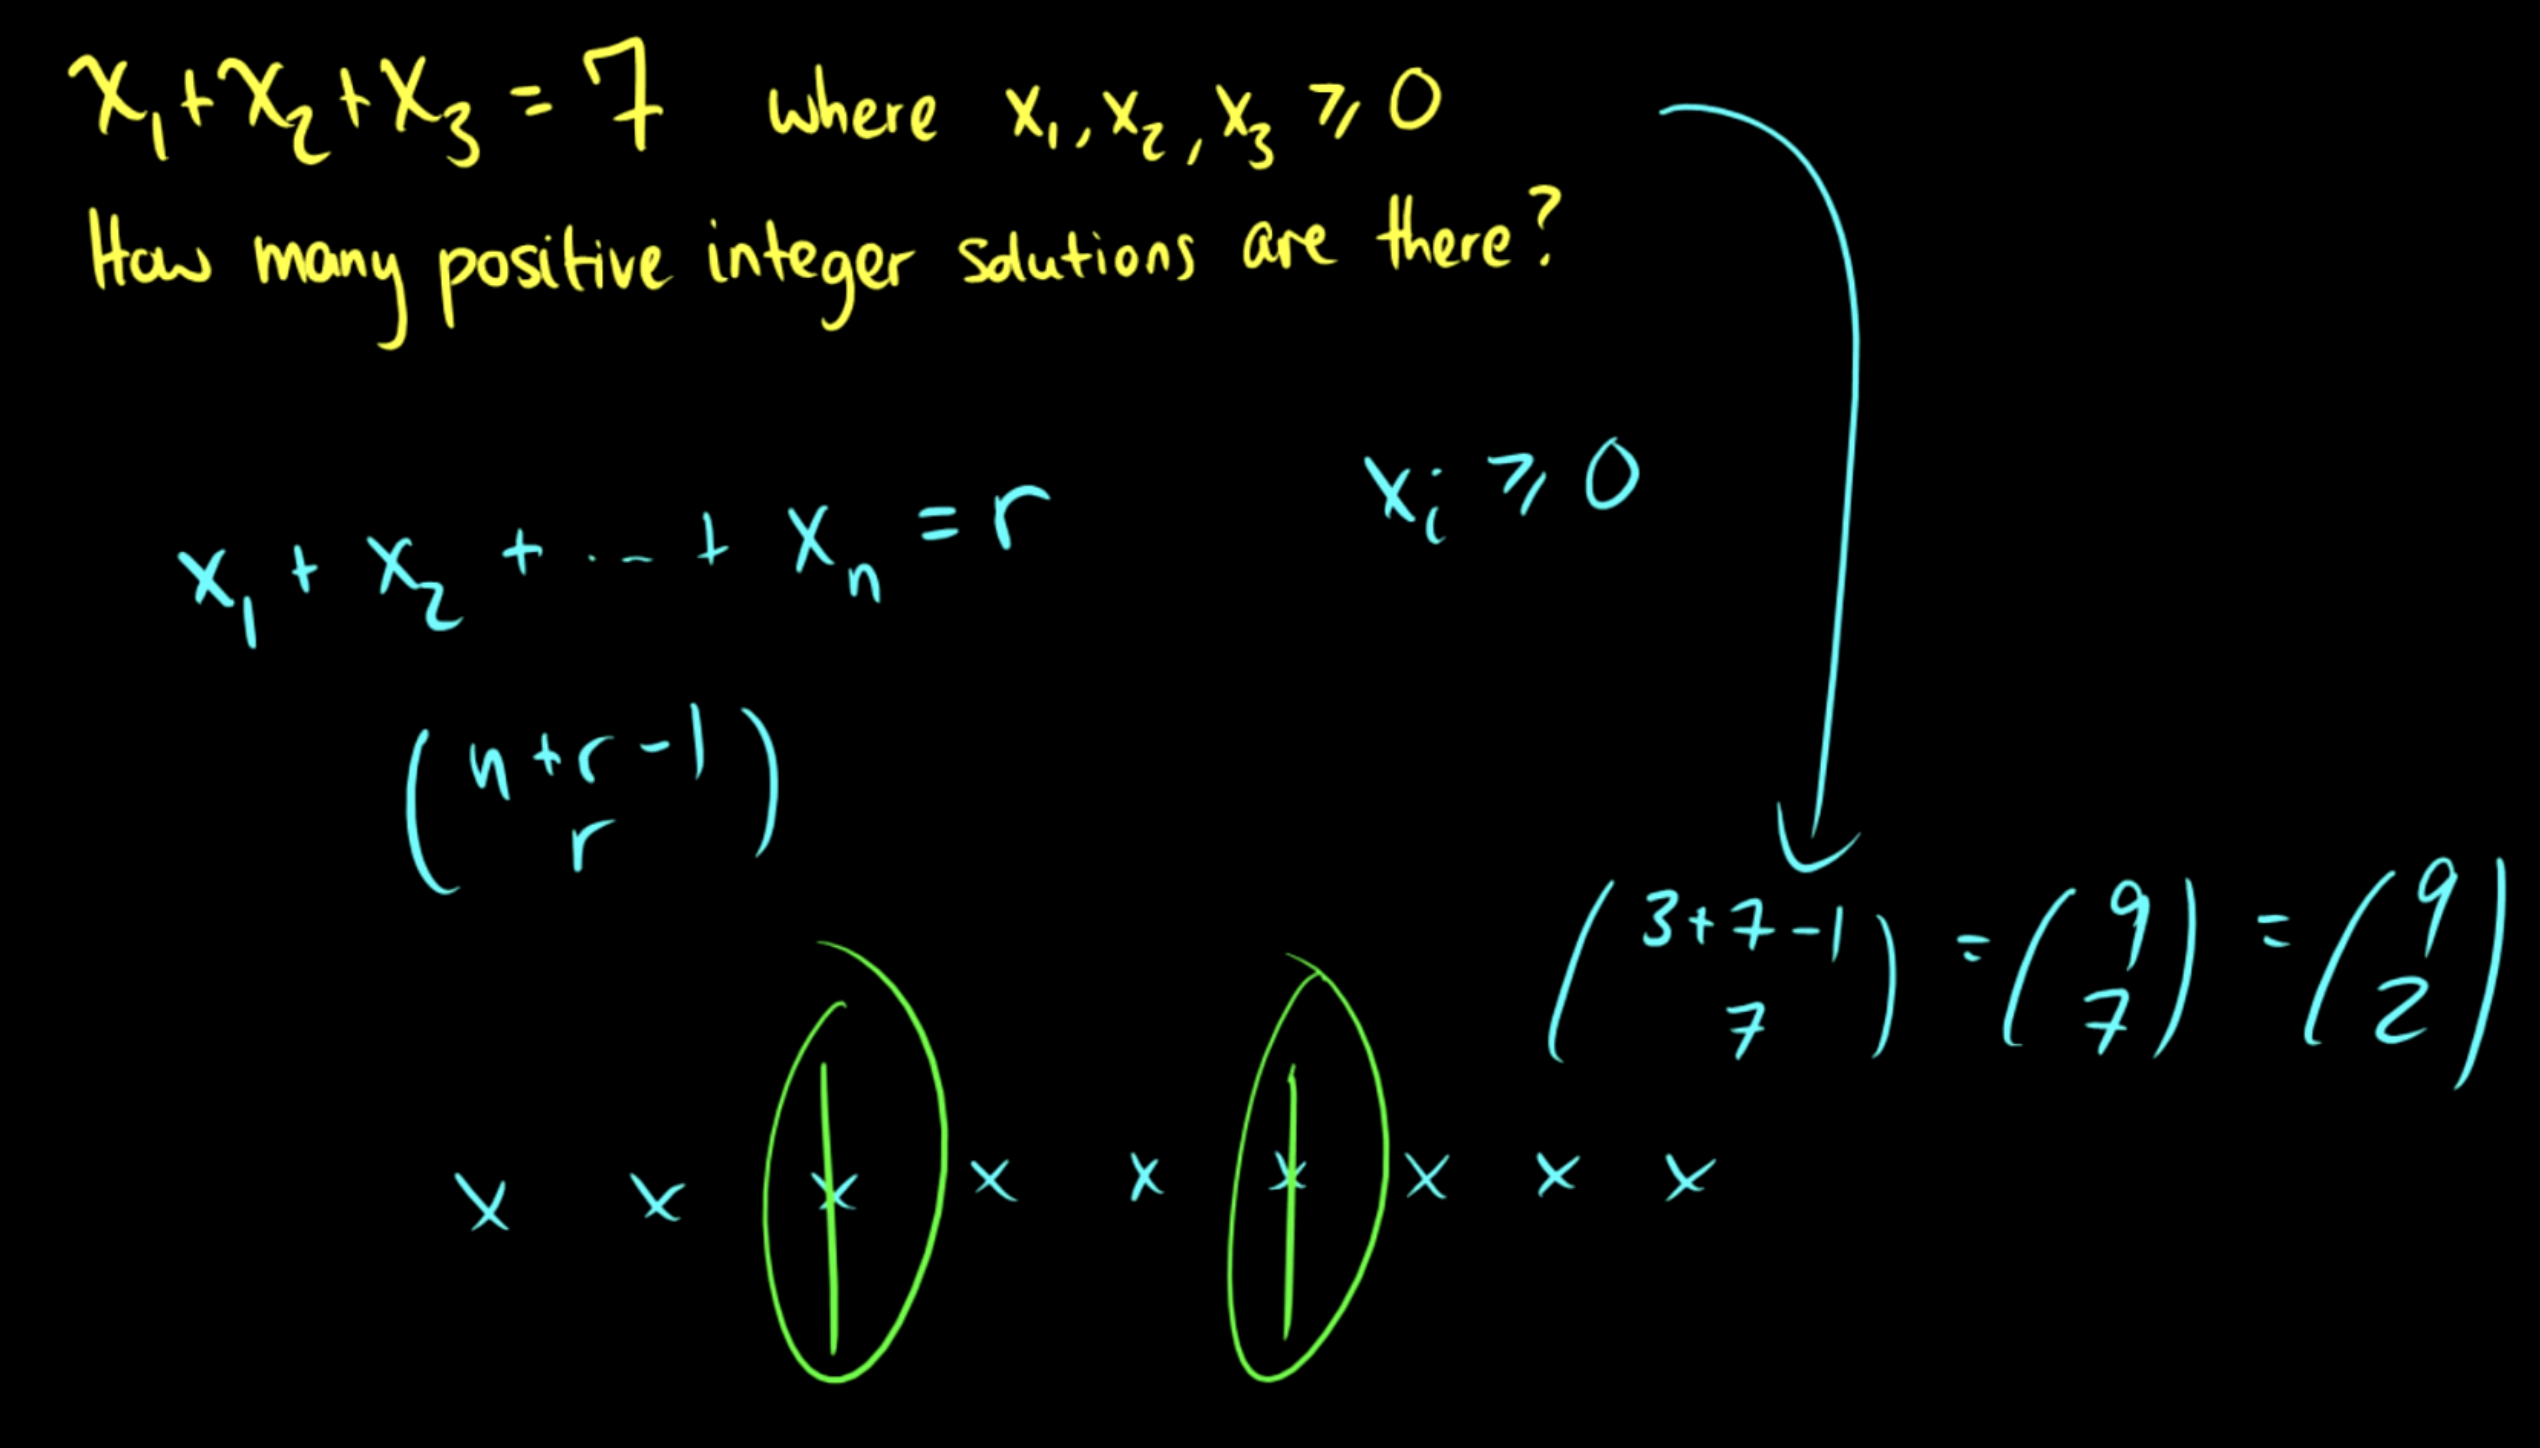 x₁+x₂+x₃ = 7 where x₁, x₂, x₃ ⩾ 0
How many positive integer solutions are there?
x₁ + x₂ + ... + xₙ = r xᵢ ⩾ 0
(n+r-1
r)
(3+7-1
7) = (9
7) = (9
2)
x x x x x x x x x